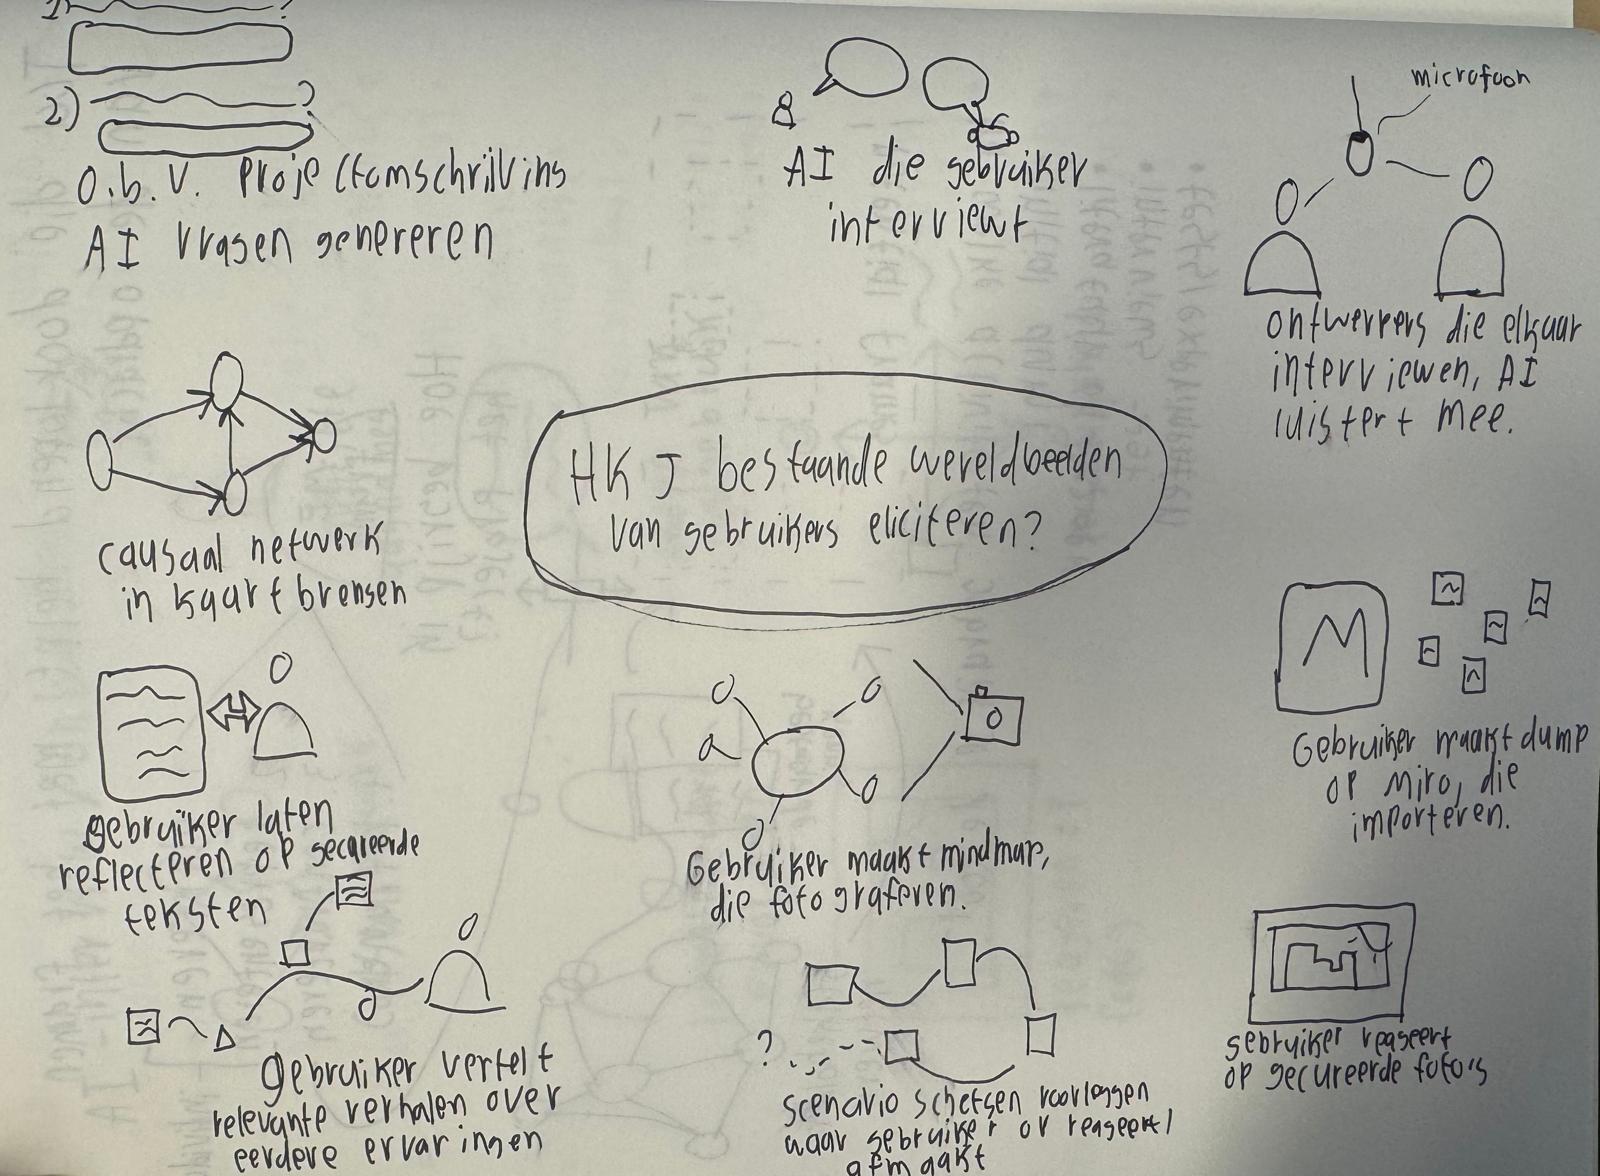 1) ?
2) ?
O.b.v. projectomschrijving
AI vragen genereren
AI die gebruiker
interviewt
microfoon
ontwerpers die elkaar
interviewen, AI
luistert mee.
causaal netwerk
in kaart brengen
HKJ bestaande wereldbeelden
van gebruikers eliciteren?
M
Gebruiker maakt dump
op Miro, die
importeren.
gebruiker laten
reflecteren op gecureerde
teksten
Gebruiker maakt mindmap,
die fotograferen.
gebruiker vertelt
relevante verhalen over
eerdere ervaringen
?
scenario schetsen voorleggen
waar gebruiker op reageert/
afmaakt
gebruiker reageert
op gecureerde foto's